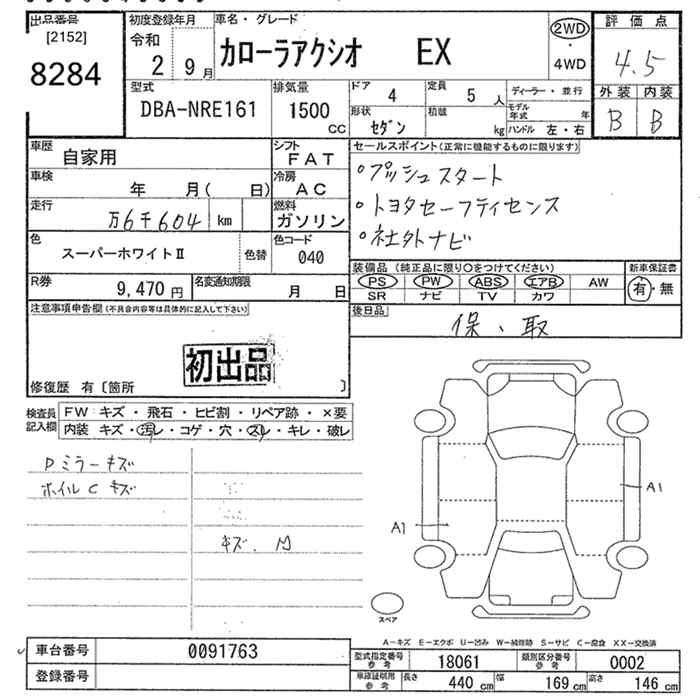 出品番号
[2152]
8284
初度登録年月
令和
2 9月
車名・グレード
カローラアクシオ EX
2WD
・
4WD
評価点
4.5
外装 内装
B B
型式
DBA-NRE161
排気量
1500
CC
ドア 4
定員 5 人
ディーラー・並行
形状 セダン
積載 kg
モデル年式 年
ハンドル 左・右
車歴 自家用
シフト FAT
車検 年 月( 日)
冷房 AC
走行 万6千604 km
燃料 ガソリン
色 スーパーホワイトⅡ 色替
色コード 040
R券 9,470円
名変通知期限 月 日
セールスポイント(正常に機能するものに限ります)
・プッシュスタート
・トヨタセーフティセンス
・社外ナビ
装備品 (純正品に限り○をつけてください)
PS PW ABS エアB AW
SR ナビ TV カワ
新車保証書
有・無
後日品
保、取
注意事項申告欄(不具合内容等は具体的に記入して下さい)
初出品
修復歴 有〔箇所 〕
検査員記入欄
FW キズ・飛石・ヒビ割・リペア跡・×要
内装 キズ・汚レ・コゲ・穴・スレ・キレ・破レ
Pミラーキズ
ホイルCキズ
キズ、
A1
A1
スペア
A-キズ E-エクボ U-凹み W-補修跡 S-サビ C-腐食 XX-交換済
車台番号 0091763
登録番号
型式指定番号参考 18061
類別区分番号参考 0002
車庫証明用参考 長さ 440cm 幅 169cm 高さ 146cm